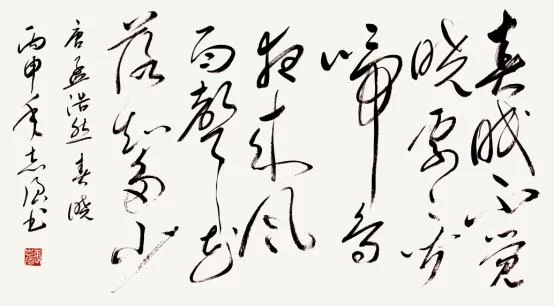 春眠不觉
晓处处闻
啼鸟
夜来风
雨聲花
落知多少
唐孟浩然春晓
丙申年志书